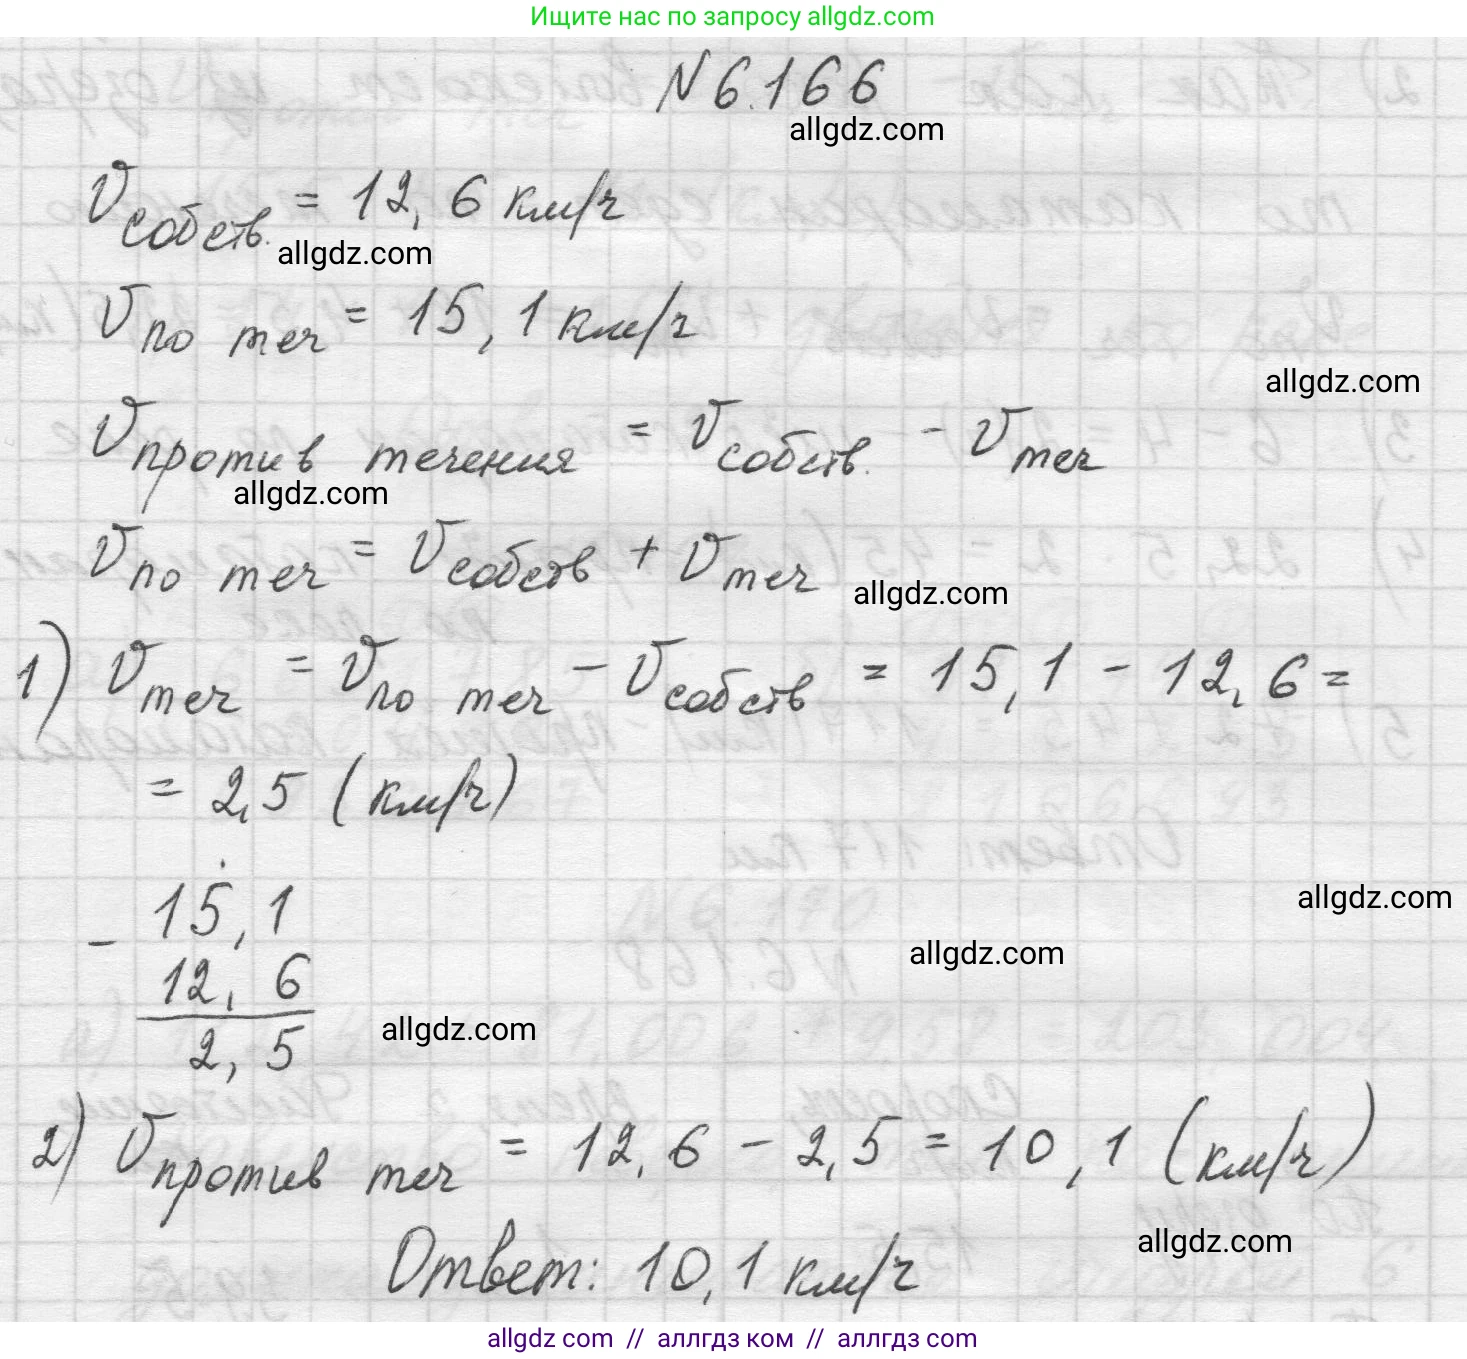 Ищите нас по запросу allgdz.com
N 6.166
allgdz.com
V собств. = 12,6 км/ч
allgdz.com
V по теч = 15,1 км/ч
allgdz.com
V против течения = V собств. - V теч
allgdz.com
V по теч = V собств + V теч
allgdz.com
1) V теч = V по теч - V собств = 15,1 - 12,6 =
= 2,5 (км/ч)
15,1
allgdz.com
-
allgdz.com
12,6
allgdz.com
2,5
2) V против теч = 12,6 - 2,5 = 10,1 (км/ч)
allgdz.com
Ответ: 10,1 км/ч
allgdz com // аллгдз ком // аллгдз com